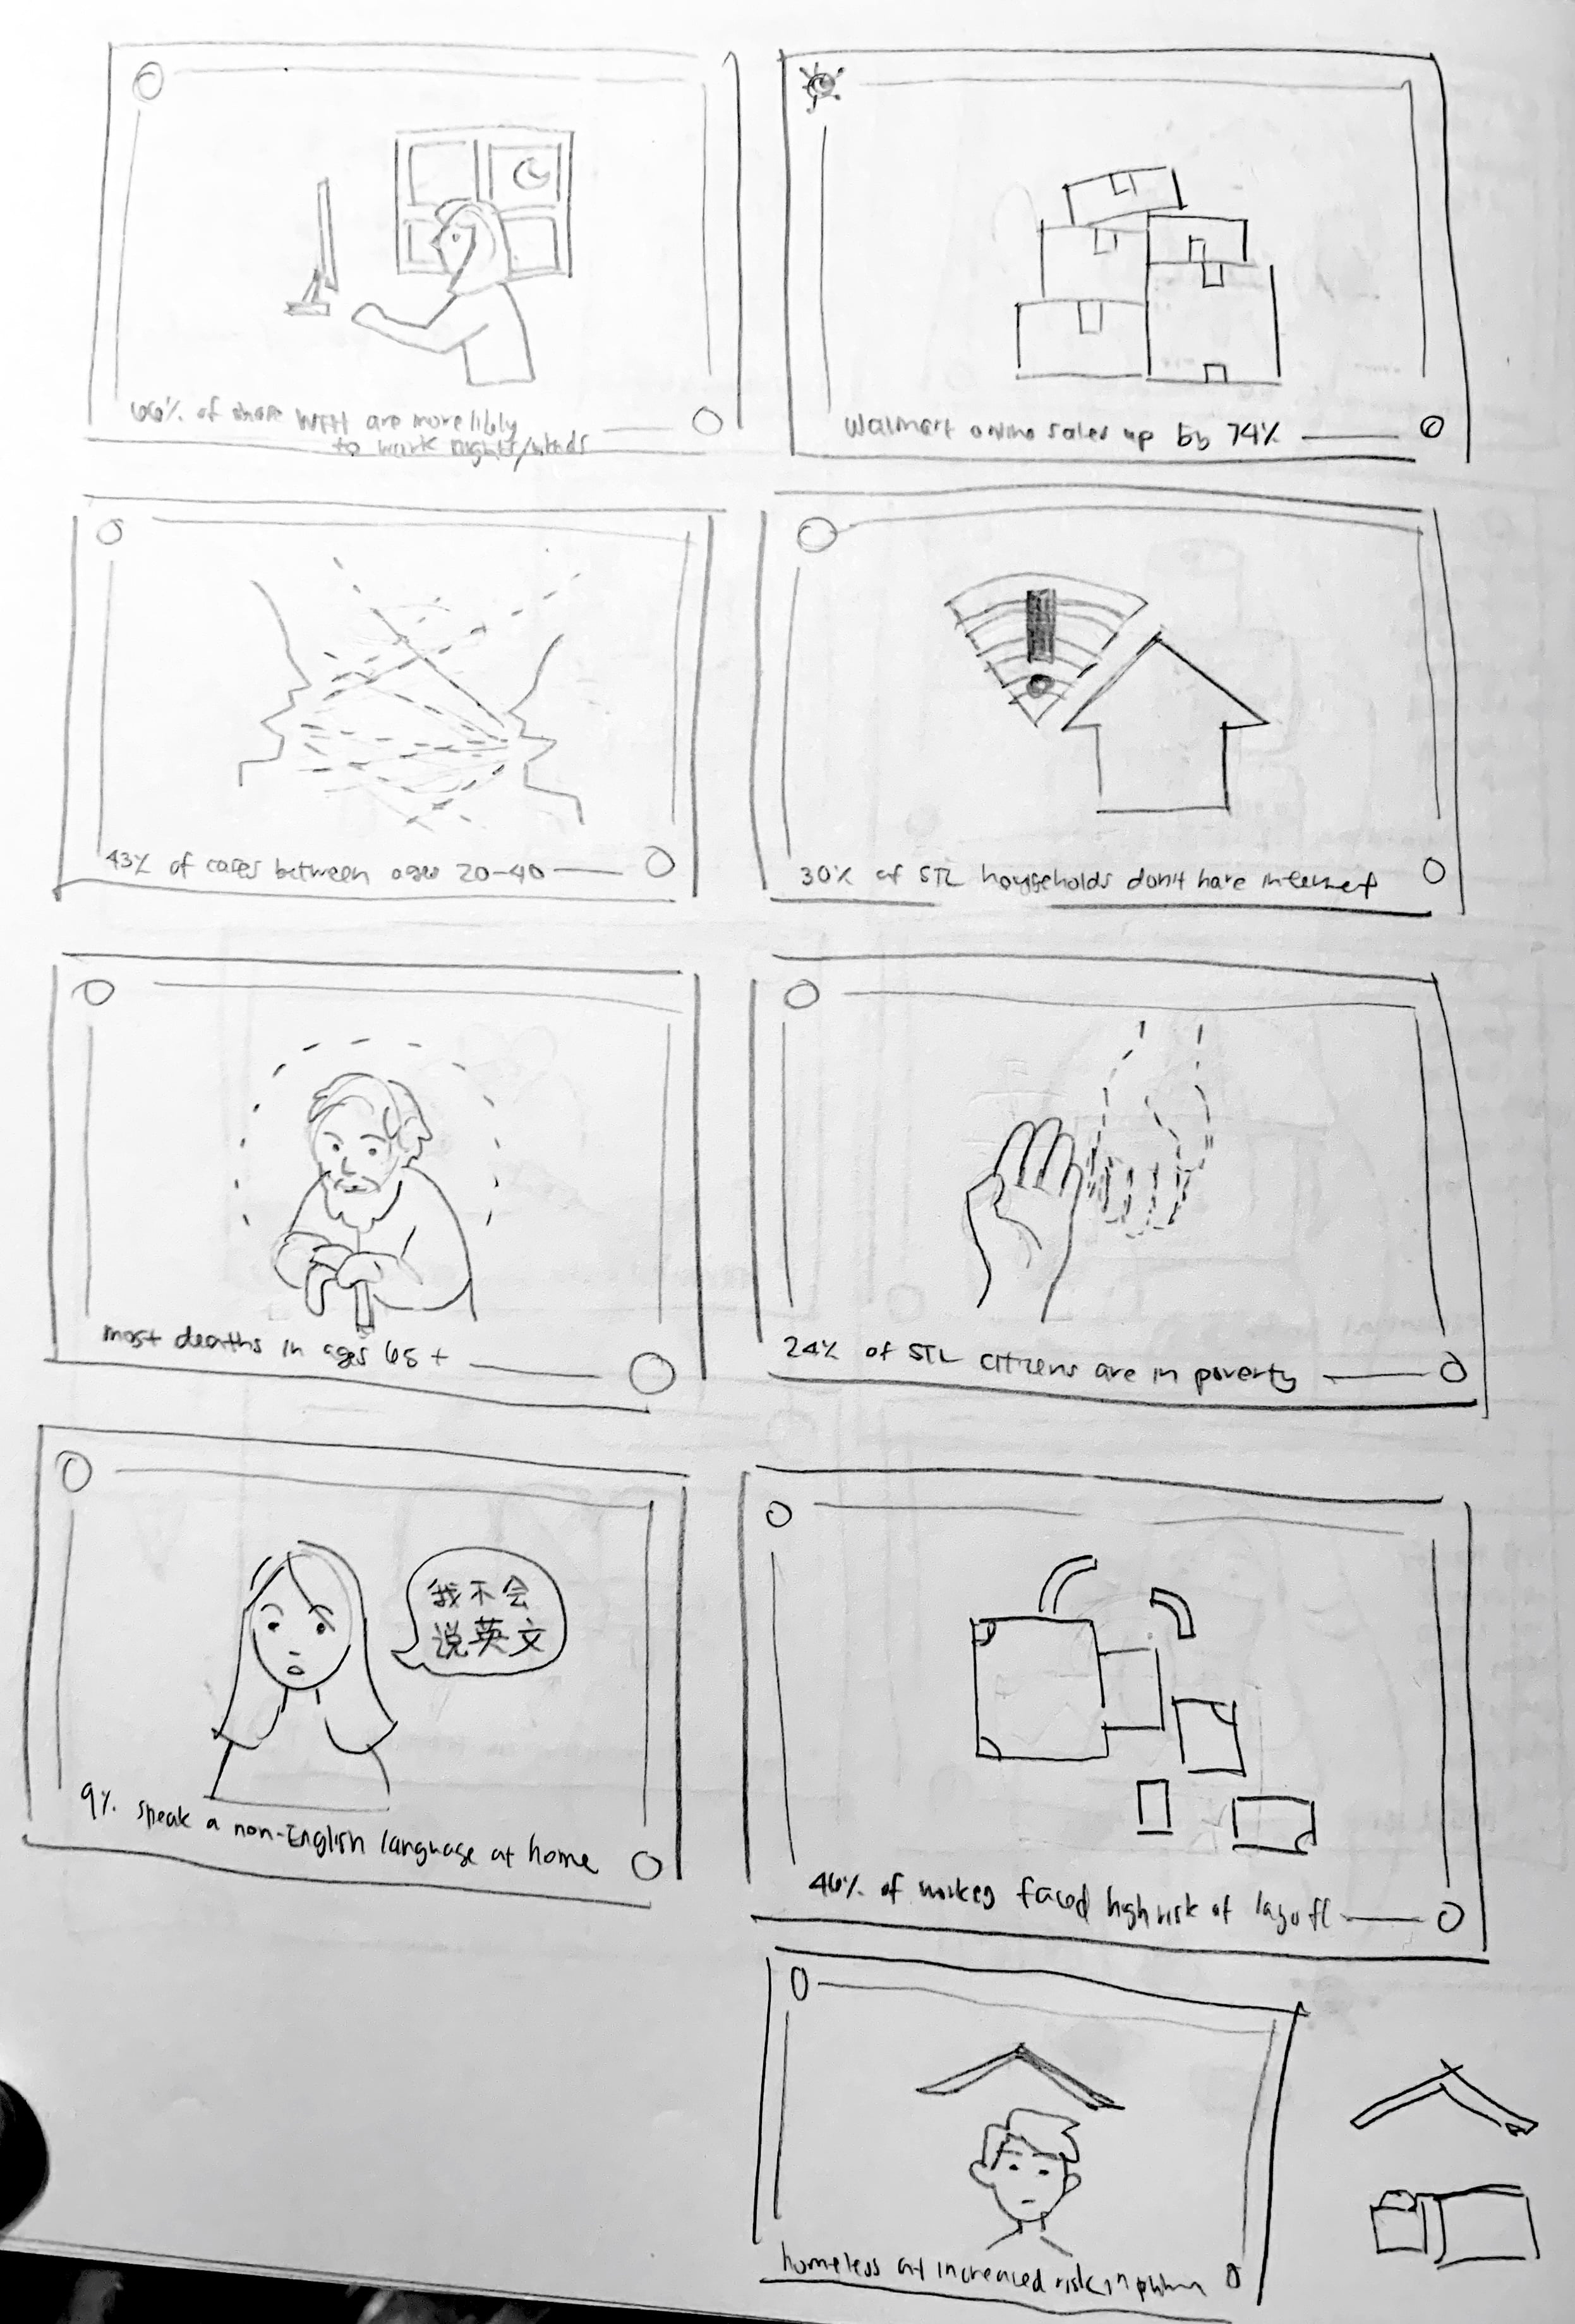 66% of those WFH are more likly
to work nights/wknds
Walmart online sales up by 74%
43% of cases between ages 20-40
30% of STL households don't have internet
most deaths in ages 65+
24% of STL citizens are in poverty
我不会
说英文
9% speak a non-English language at home
46% of workers faced high risk of layoff
homeless at increased risk in